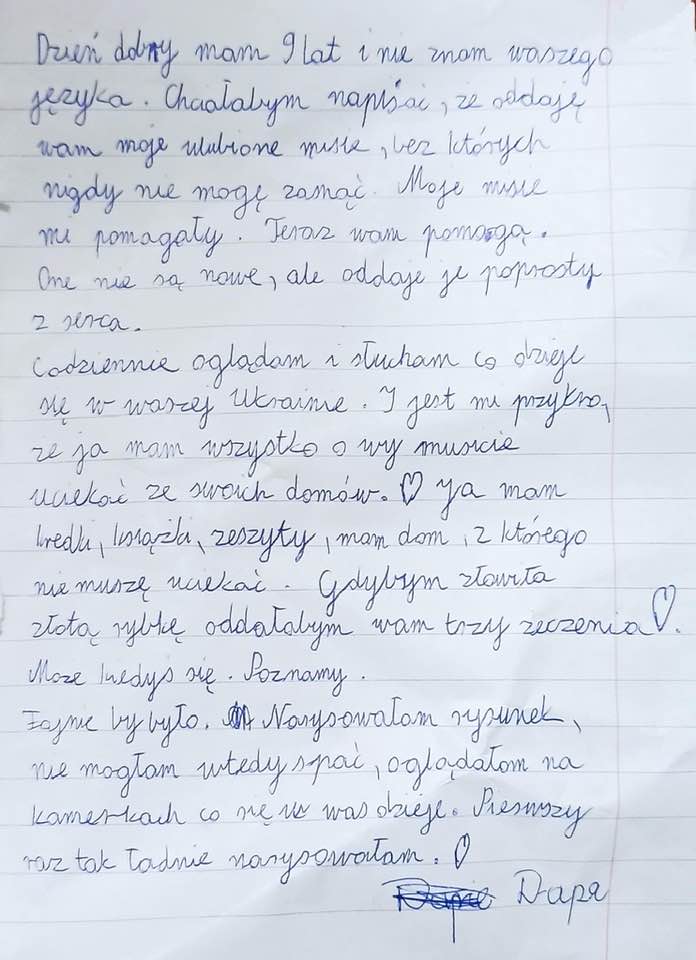 Dzień dobry mam 9 lat i nie znam waszego
języka. Chciałabym napisać, że oddaję
wam moje ulubione misie, bez których
nigdy nie mogę zasnąć. Moje misie
mi pomagały. Teraz wam pomogą.
One nie są nowe, ale oddaje je poprosty
z serca.
Codziennie oglądam i słucham co dzieje
się w waszej Ukrainie. I jest mi przykro,
że ja mam wszystko o wy musicie
uciekać ze swoich domów. ♡ Ja mam
kredki, książki, zeszyty, mam dom, z którego
nie muszę uciekać. Gdybym złowiła
złotą rybkę oddałabym wam trzy zeczenia ♡.
Może kiedys się. Poznamy.
Fajnie by było. Narysowałam rysunek,
nie mogłam wtedy spać, oglądałam na
kamerkach co się u was dzieje. Pierwszy
raz tak ładnie narysowałam. ♡